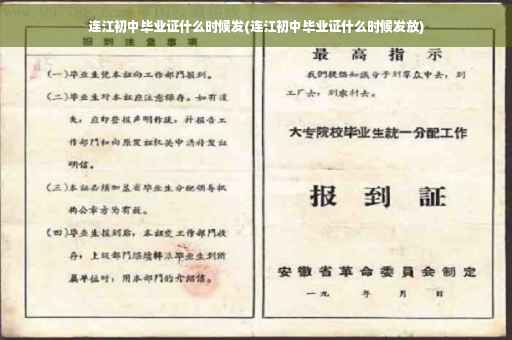 连江初中毕业证什么时候发(连江初中毕业证什么时候发放)
报到注意事项
(一)毕业生凭本证向工作部门报到。
(二)毕业生对本证应注意保存。如有遗
失，应即登报声明作废，并报告工
作部门和向原发证机关申请补发证
明信。
(三)本证必须加盖省毕业生分配领导机
构公章方为有效。
(四)毕业生报到后，本证交工作部门收
存，上级部门继续转派毕业生到所
属单位时，用本部门的介绍信。
最高指示
我们提倡知识分子到群众中去，到
工厂去，到农村去。
大专院校毕业生统一分配工作
报到証
安徽省革命委員会制定
一九 年 月 日